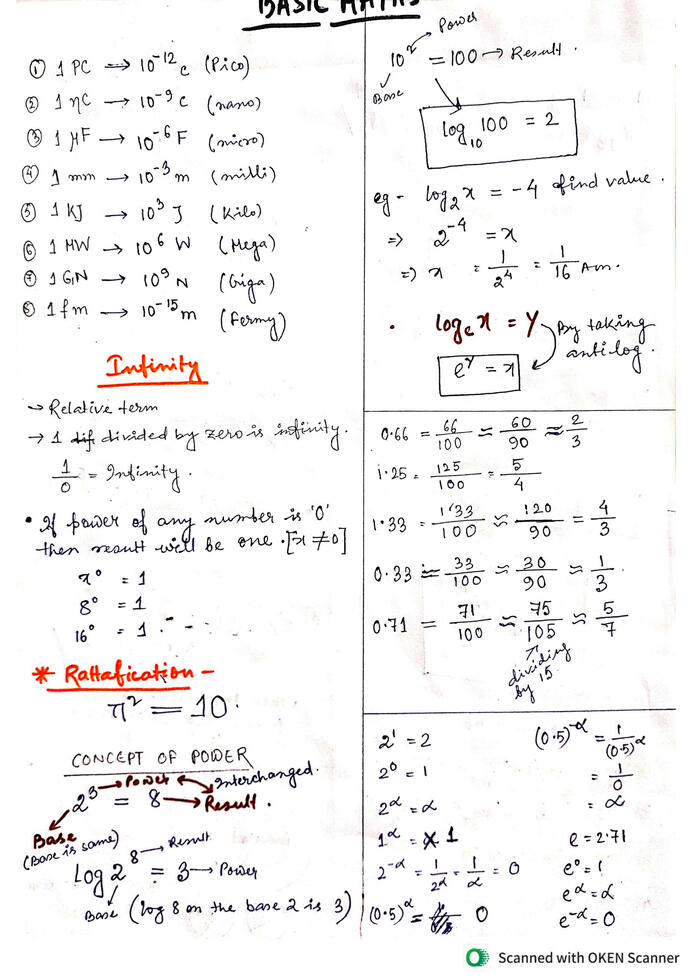 BASIC MATHS
① 1 PC → 10⁻¹² C (Pico)
② 1 ηC → 10⁻⁹ C (nano)
③ 1 μF → 10⁻⁶ F (micro)
④ 1 mm → 10⁻³ m (milli)
⑤ 1 KJ → 10³ J (Kilo)
⑥ 1 MW → 10⁶ W (Mega)
⑦ 1 GN → 10⁹ N (Giga)
⑧ 1 fm → 10⁻¹⁵ m (Fermy)
Infinity
→ Relative term
→ 1 divided by zero is infinity.
1/0 = Infinity.
• If power of any number is '0'
then result will be one. [x ≠ 0]
x⁰ = 1
8⁰ = 1
16⁰ = 1
* Rattafication -
π² = 10
CONCEPT OF POWER
Power Interchanged.
2³ = 8 → Result.
Base
(Base is same)
Result
Log 2⁸ = 3 → Power
Base (log 8 on the base 2 is 3)
Power
10² = 100 → Result.
Base
log₁₀ 100 = 2
eg - log₂ x = -4 find value.
⇒ 2⁻⁴ = x
⇒ x = 1/2⁴ = 1/16 Ans.
• logₑ x = y By taking
antilog.
eʸ = x
0.66 = 66/100 ≈ 60/90 ≈ 2/3
1.25 = 125/100 = 5/4
1.33 = 133/100 ≈ 120/90 = 4/3
0.33 = 33/100 ≈ 30/90 ≈ 1/3.
0.71 = 71/100 ≈ 75/105 ≈ 5/7
dividing
by 15
2¹ = 2
2⁰ = 1
2^α = α
1^α = 1
2^-α = 1/2^α = 1/α = 0
(0.5)^α = 0
(0.5)^-α = 1/(0.5)^α
= 1/0
= α
e = 2.71
e⁰ = 1
e^α = α
e^-α = 0
Scanned with OKEN Scanner